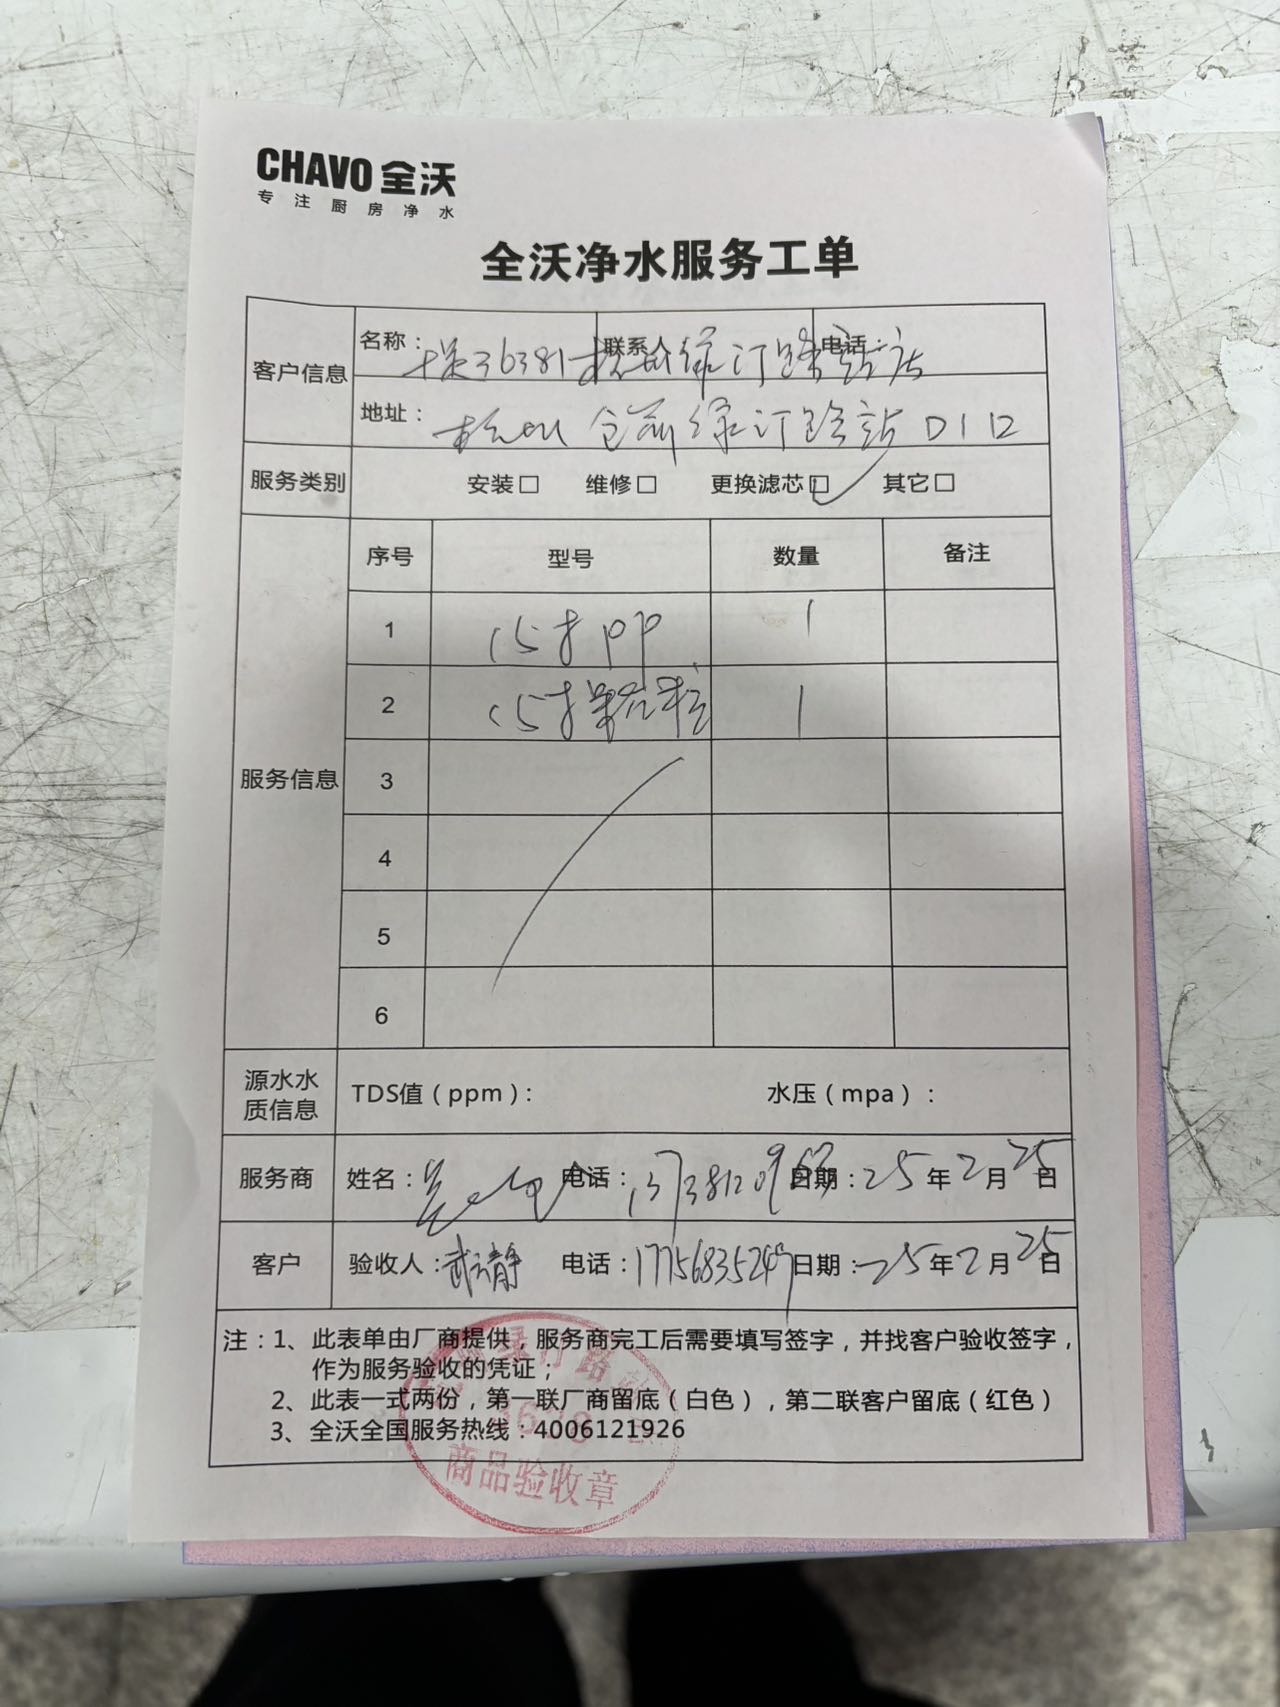 CHAVO 全沃
专注厨房净水
全沃净水服务工单
客户信息
名称： 36381杭州绿汀路站店 联系人 电话：
地址： 杭州仓前绿汀路站D1口
服务类别 安装□ 维修□ 更换滤芯☑ 其它□
服务信息
序号 型号 数量 备注
1 15寸PP 1
2 15寸 1
3
4
5
6
源水水质信息 TDS值（ppm）： 水压（mpa）：
服务商 姓名： 电话： 日期：25年2月25日
客户 验收人：武靖 电话：17756835247 日期：25年2月25日
注：1、此表单由厂商提供，服务商完工后需要填写签字，并找客户验收签字，
作为服务验收的凭证；
2、此表一式两份，第一联厂商留底（白色），第二联客户留底（红色）
3、全沃全国服务热线：4006121926
商品验收章